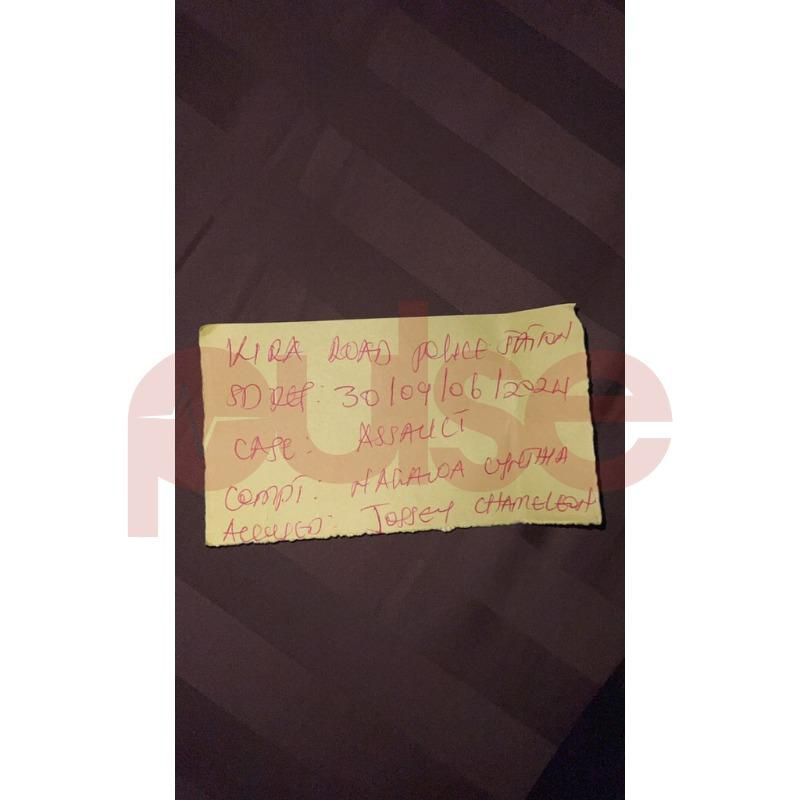 KIRA ROAD POLICE STATION
SD REF: 30/09/06/2024
CASE: ASSAULT
COMPT: CYNTHIA
ACCUSED: JOSSEY CHAMELEON
pulse